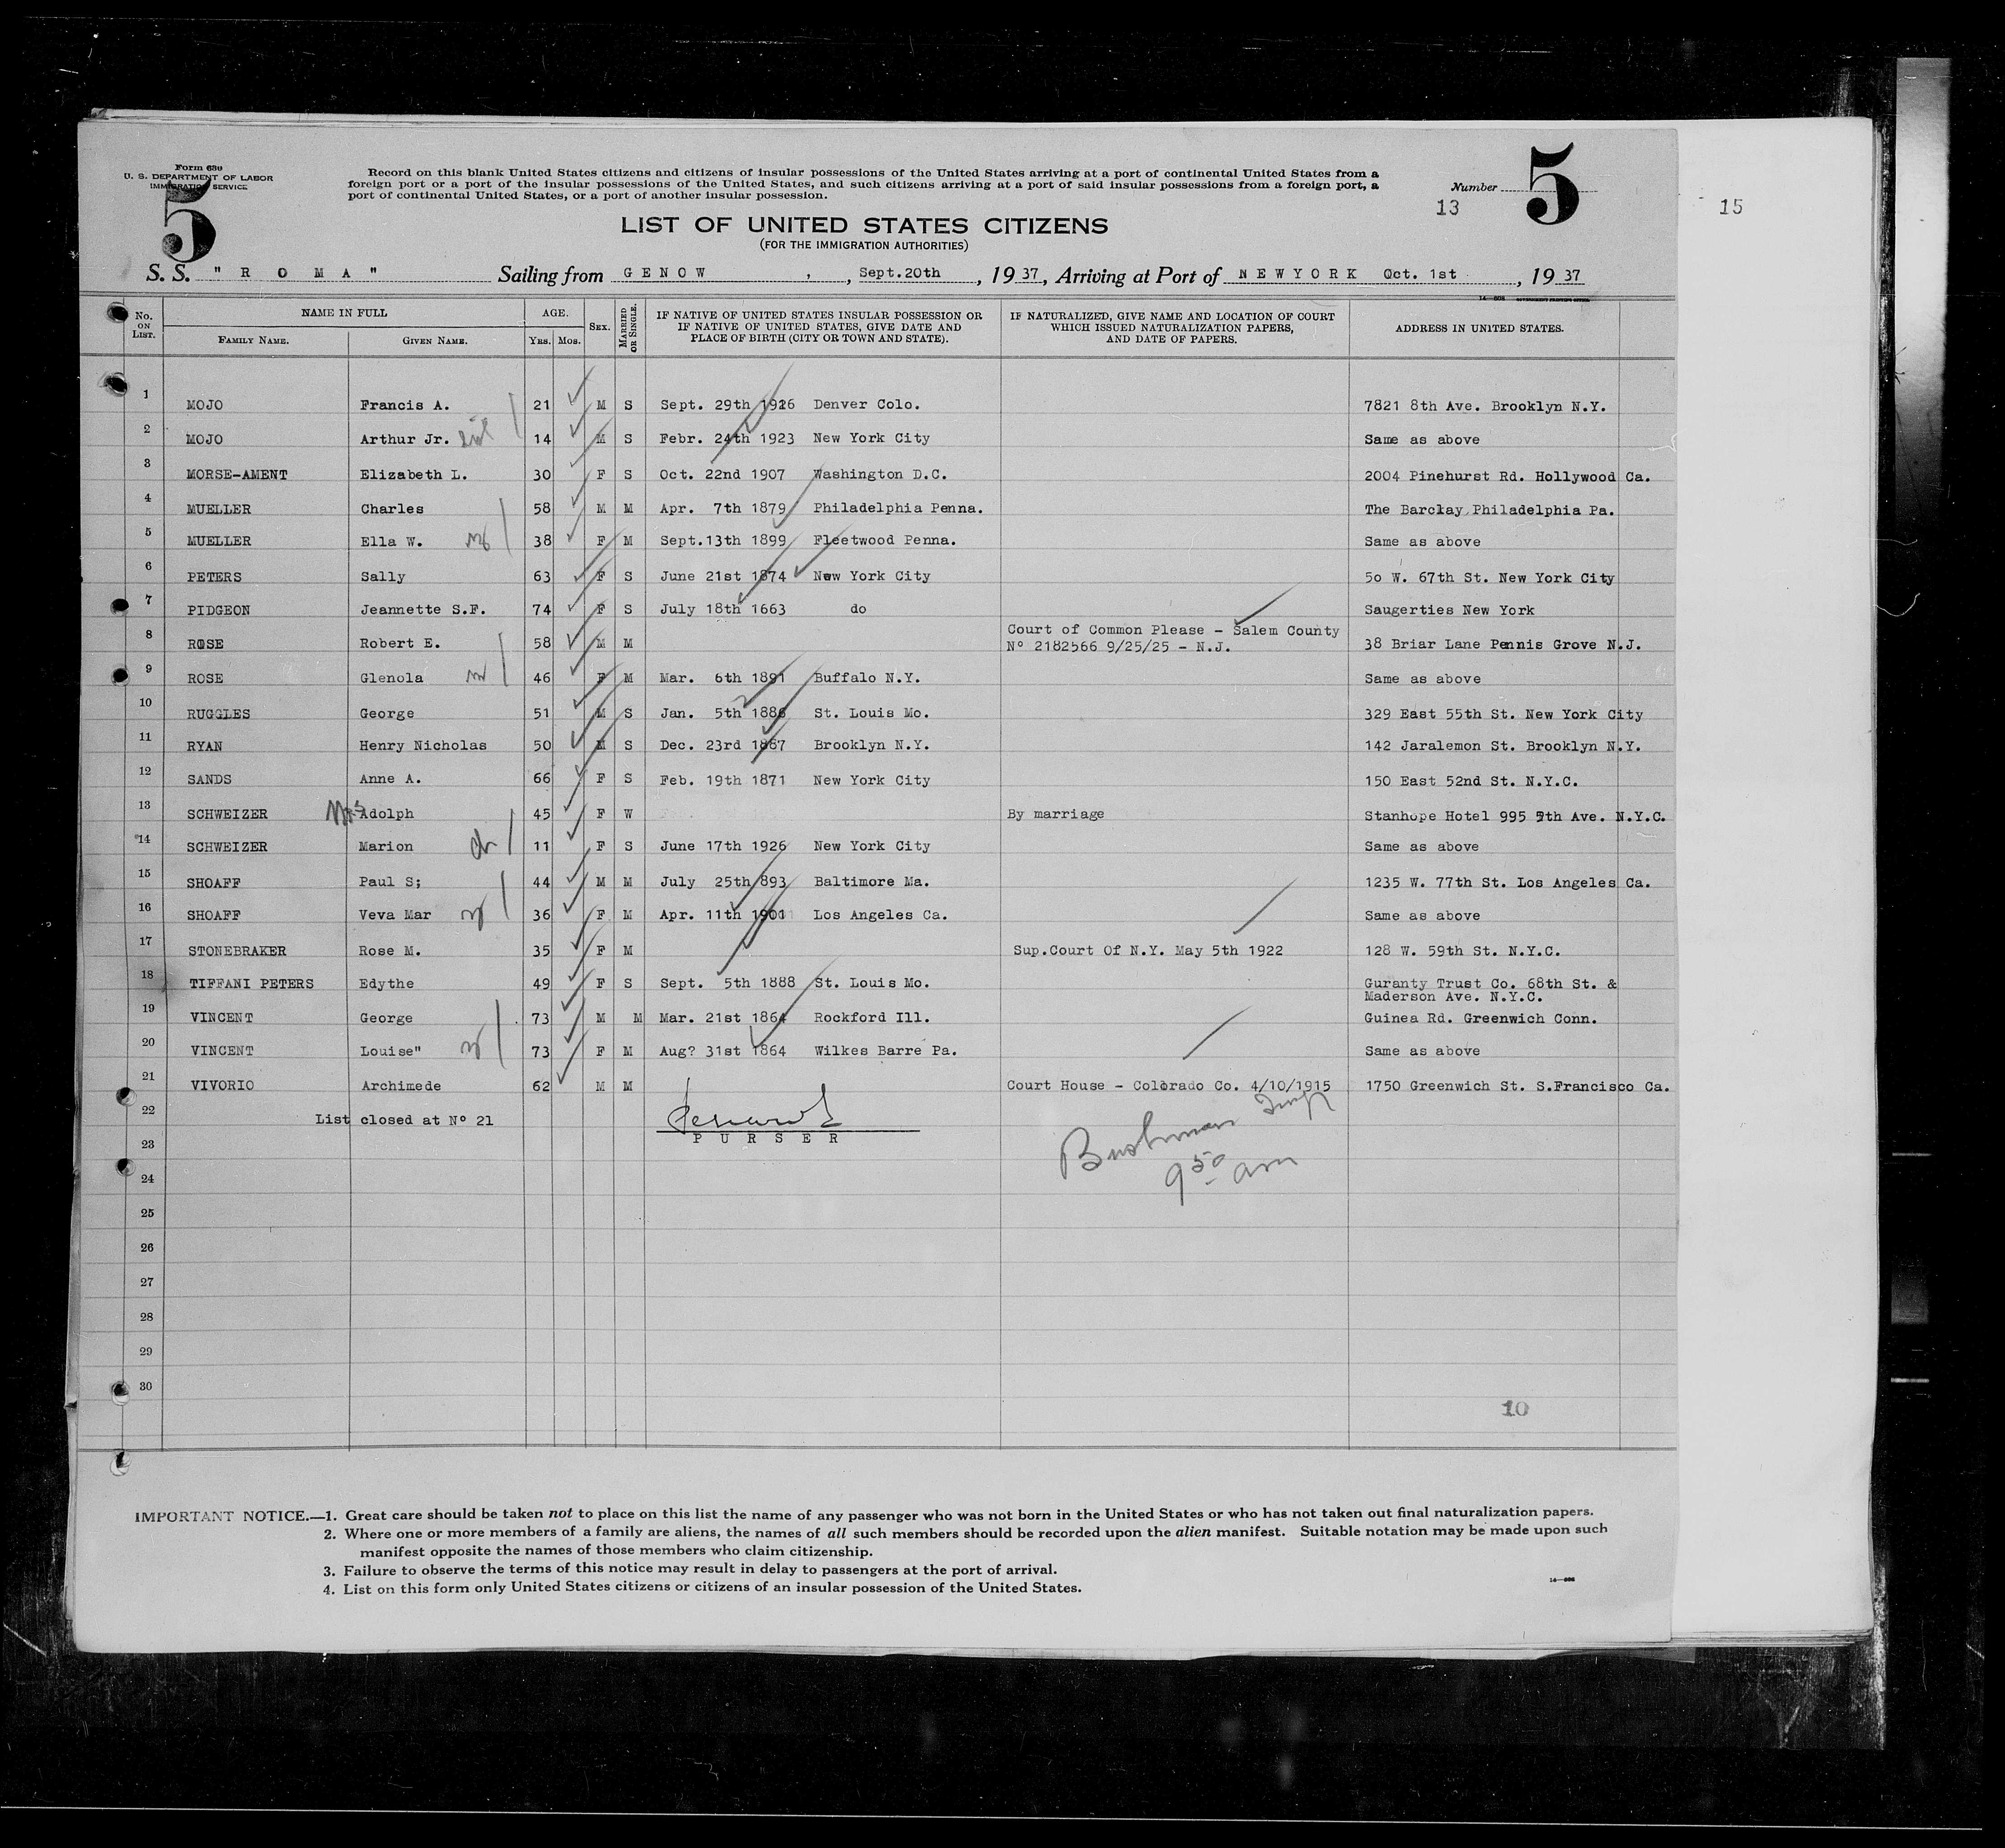 Form 630
U. S. DEPARTMENT OF LABOR
IMMIGRATION SERVICE
5
Record on this blank United States citizens and citizens of insular possessions of the United States arriving at a port of continental United States from a
foreign port or a port of the insular possessions of the United States, and such citizens arriving at a port of said insular possessions from a foreign port, a
port of continental United States, or a port of another insular possession.
Number 5
13
15
LIST OF UNITED STATES CITIZENS
(FOR THE IMMIGRATION AUTHORITIES)
S. S. " R O M A " Sailing from G E N O W , , Sept.20th , 19 37, Arriving at Port of N E W Y O R K Oct. 1st , 19 37
No. ON LIST. NAME IN FULL AGE. SEX. MARRIED OR SINGLE. IF NATIVE OF UNITED STATES INSULAR POSSESSION OR IF NATIVE OF UNITED STATES, GIVE DATE AND PLACE OF BIRTH (CITY OR TOWN AND STATE). IF NATURALIZED, GIVE NAME AND LOCATION OF COURT WHICH ISSUED NATURALIZATION PAPERS, AND DATE OF PAPERS. ADDRESS IN UNITED STATES.
FAMILY NAME. GIVEN NAME. YRS. MOS.
1 MOJO Francis A. 21 M S Sept. 29th 1926 Denver Colo. 7821 8th Ave. Brooklyn N.Y.
2 MOJO Arthur Jr. 14 M S Febr. 24th 1923 New York City Same as above
3 MORSE-AMENT Elizabeth L. 30 F S Oct. 22nd 1907 Washington D.C. 2004 Pinehurst Rd. Hollywood Ca.
4 MUELLER Charles 58 M M Apr. 7th 1879 Philadelphia Penna. The Barclay Philadelphia Pa.
5 MUELLER Ella W. 38 F M Sept.13th 1899 Fleetwood Penna. Same as above
6 PETERS Sally 63 F S June 21st 1874 New York City 5o W. 67th St. New York City
7 PIDGEON Jeannette S.F. 74 F S July 18th 1663 do Saugerties New York
8 ROSE Robert E. 58 M M Court of Common Please - Salem County
Nº 2182566 9/25/25 - N.J. 38 Briar Lane Pennis Grove N.J.
9 ROSE Glenola 46 F M Mar. 6th 1891 Buffalo N.Y. Same as above
10 RUGGLES George 51 M S Jan. 5th 1886 St. Louis Mo. 329 East 55th St. New York City
11 RYAN Henry Nicholas 50 M S Dec. 23rd 1887 Brooklyn N.Y. 142 Jaralemon St. Brooklyn N.Y.
12 SANDS Anne A. 66 F S Feb. 19th 1871 New York City 150 East 52nd St. N.Y.C.
13 SCHWEIZER Mrs Adolph 45 F W By marriage Stanhope Hotel 995 5th Ave. N.Y.C.
14 SCHWEIZER Marion 11 F S June 17th 1926 New York City Same as above
15 SHOAFF Paul S; 44 M M July 25th 893 Baltimore Ma. 1235 W. 77th St. Los Angeles Ca.
16 SHOAFF Veva Mar 36 F M Apr. 11th 1901 Los Angeles Ca. Same as above
17 STONEBRAKER Rose M. 35 F M Sup.Court Of N.Y. May 5th 1922 128 W. 59th St. N.Y.C.
18 TIFFANI PETERS Edythe 49 F S Sept. 5th 1888 St. Louis Mo. Guranty Trust Co. 68th St. &
Maderson Ave. N.Y.C.
19 VINCENT George 73 M M Mar. 21st 1864 Rockford Ill. Guinea Rd. Greenwich Conn.
20 VINCENT Louise" 73 F M Aug? 31st 1864 Wilkes Barre Pa. Same as above
21 VIVORIO Archimede 62 M M Court House - Colorado Co. 4/10/1915 1750 Greenwich St. S.Francisco Ca.
22 List closed at Nº 21
P U R S E R
Bushman Insp
9 50 am
23
24
25
26
27
28
29
30
10
IMPORTANT NOTICE.—1. Great care should be taken not to place on this list the name of any passenger who was not born in the United States or who has not taken out final naturalization papers.
2. Where one or more members of a family are aliens, the names of all such members should be recorded upon the alien manifest. Suitable notation may be made upon such
manifest opposite the names of those members who claim citizenship.
3. Failure to observe the terms of this notice may result in delay to passengers at the port of arrival.
4. List on this form only United States citizens or citizens of an insular possession of the United States.